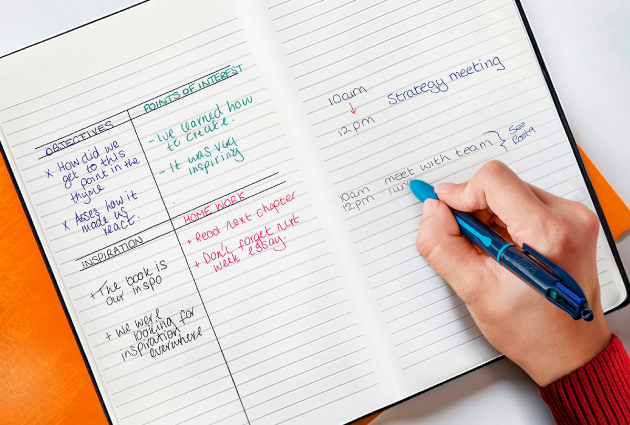 OBJECTIVES
x How did we
get to this
point in the
thyme
x Asses how it
made us
react.
POINTS OF INTEREST
- we learned how
to create.
- It was very
inspiring
INSPIRATION
+ The book is
our inspo
+ we were
looking for
inspiration for
everywhere
HOME WORK
+ Read next chapter
+ Don't forget next
week essay.
10am
12pm
Strategy meeting
10am
12pm
meet with team
See